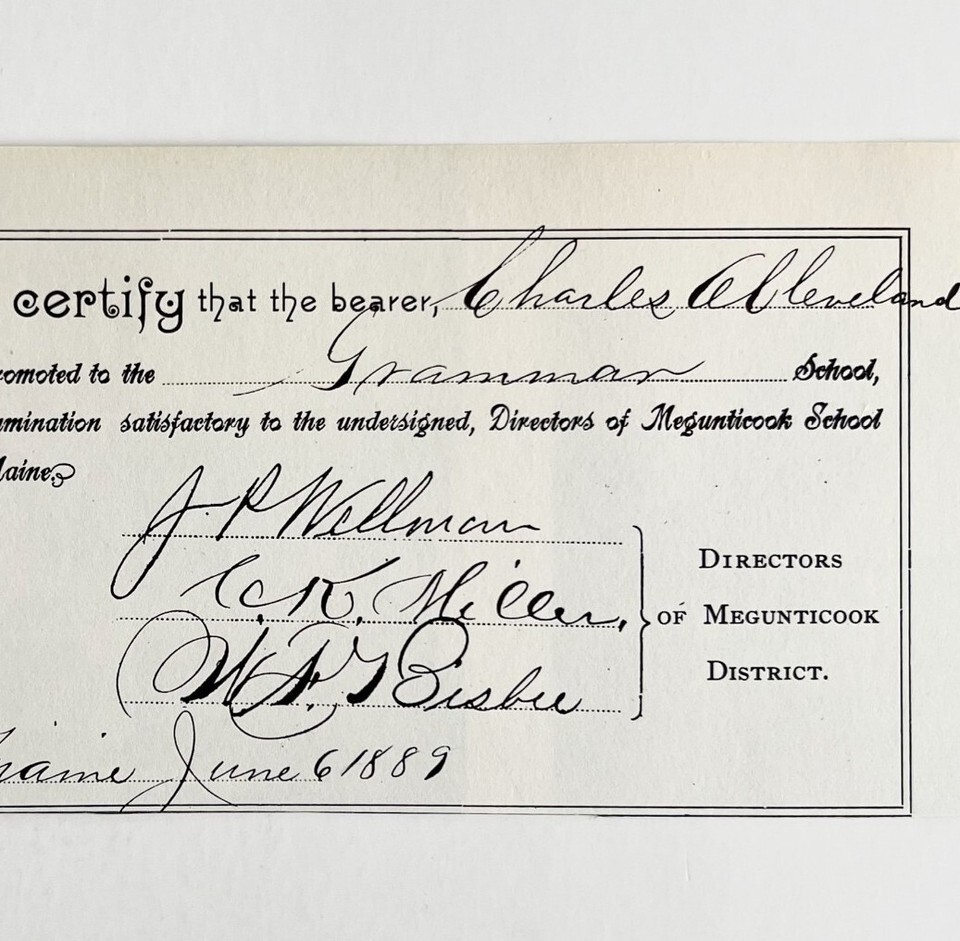 certify that the bearer, Charles A Cleveland
romoted to the Grammar School,
amination satisfactory to the undersigned, Directors of Megunticook School
Maine
J. P. Wellman
C. K. Miller,
W. F. Bisbee
DIRECTORS
OF MEGUNTICOOK
DISTRICT.
maine June 6 1889